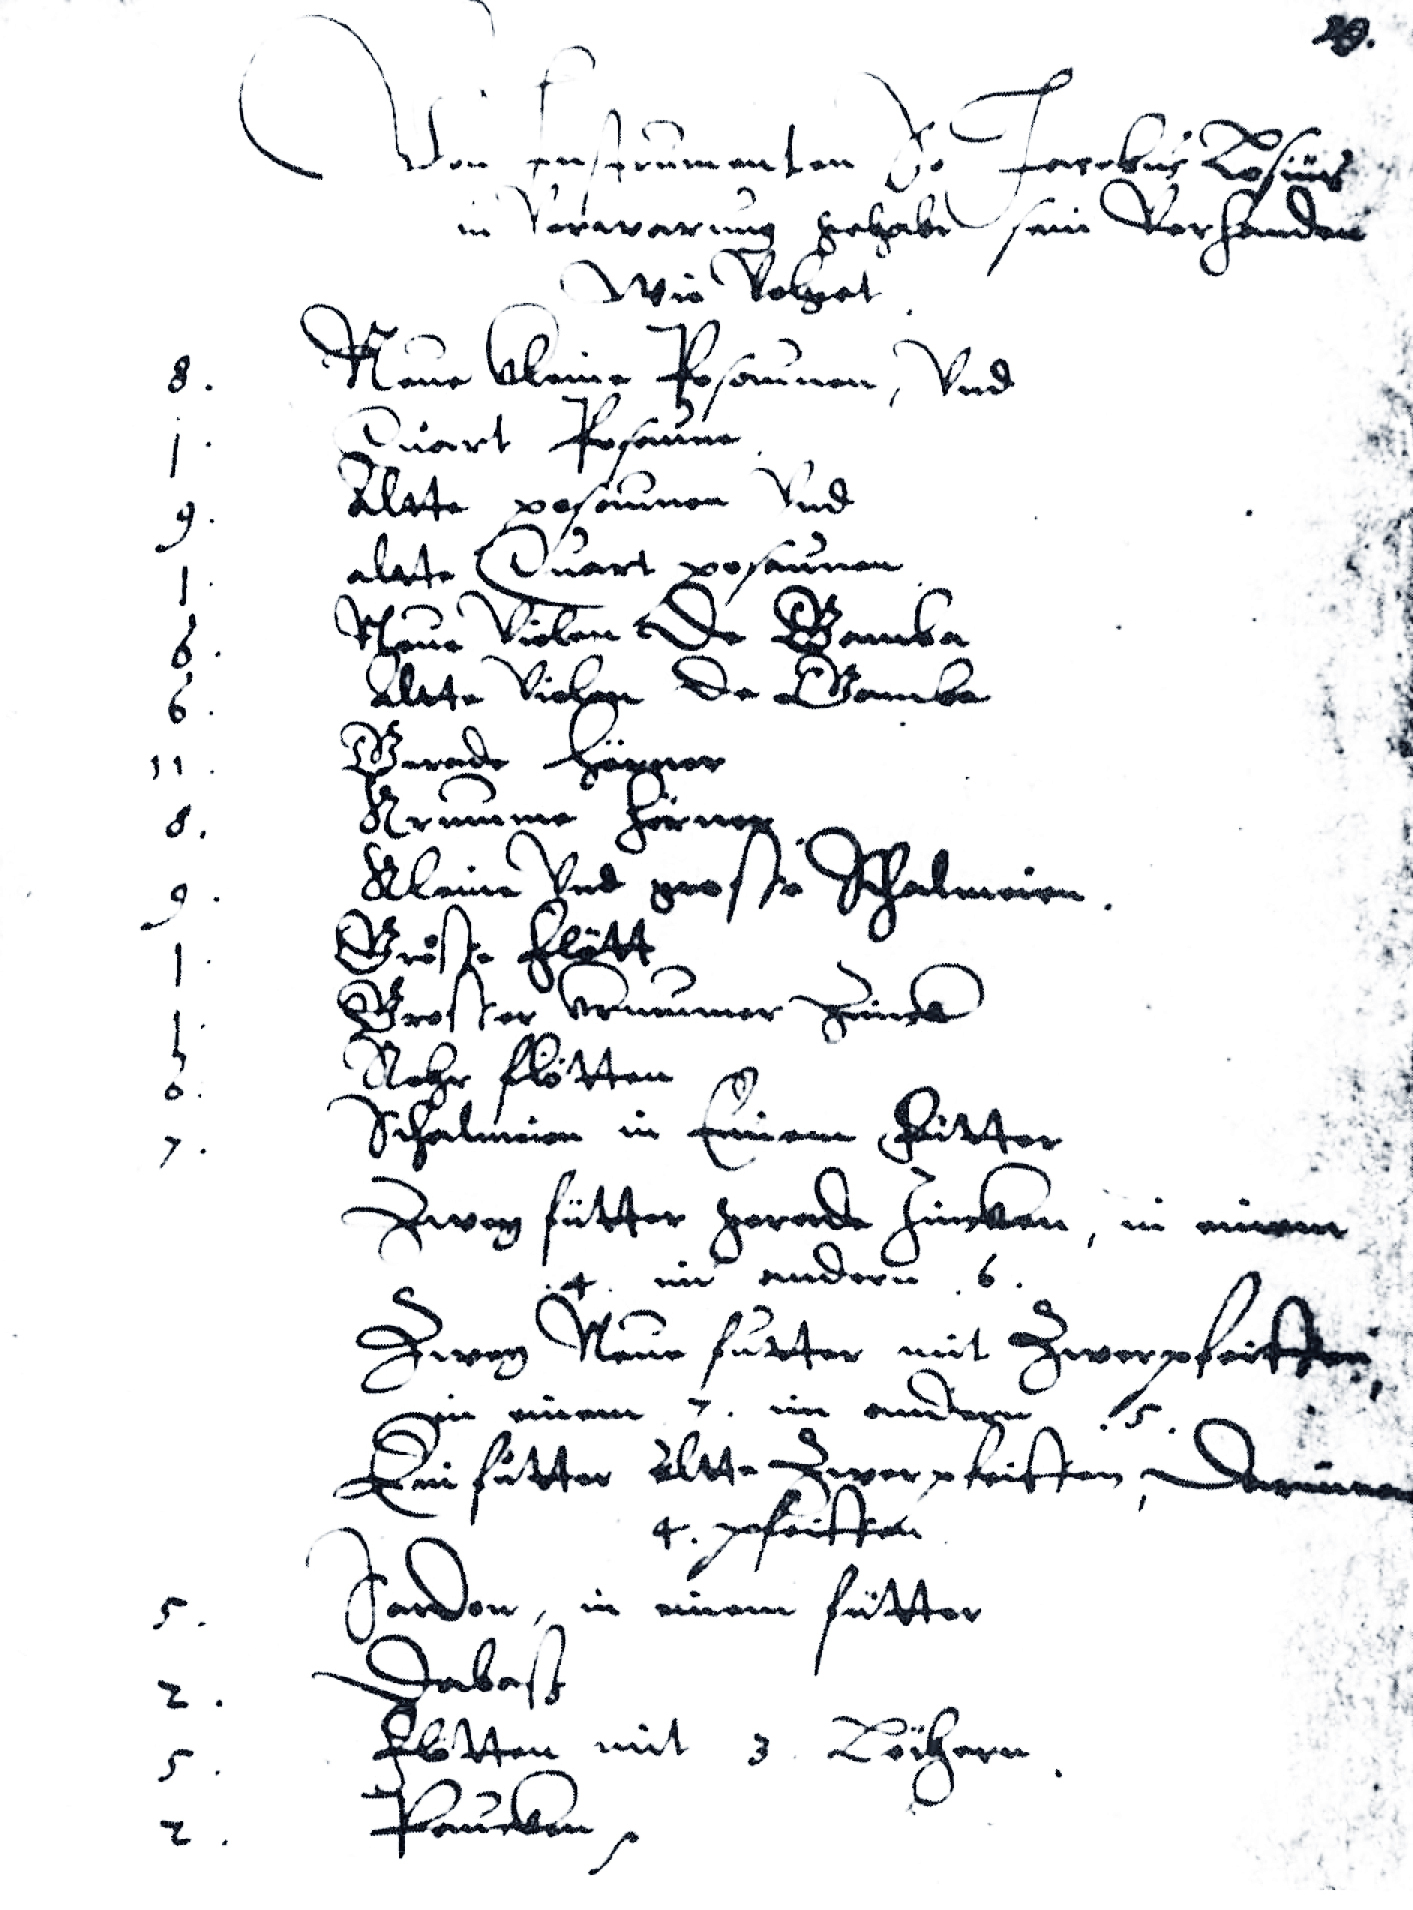 29.
Von Instrumenten So Jacobus Losius
in Verwarung gehabt sein Vorhanden
Wie Volget.
8. Neue kleine Posaunen, Vnd
1. Quart Posaune.
9. Altte posaunen Vnd
1. altte Quart posaunen
6. Neue Violen De Gamba
6. Altte Violen De Gamba
11. Gerade Hörner
8. Krumme Hörner.
9. Kleine Vnd grosse Schalmeien.
1. Grosse Flött
1. Grosser krummer Zinck
Rohr flötten
7. Schalmeien in Einem Futter
Zwey fütter gerade Zincken, in einem
.4. im andern .6.
Zwey Neue futter mit Zwerpfeiffen,
in einem 7. im andern .5.
Ein futter altte Zwerpfeiffen, Darinnen
4. pfeiffen
5. in einem fütter
2.
5. Flötten mit 3. Löchern.
2. Paucken